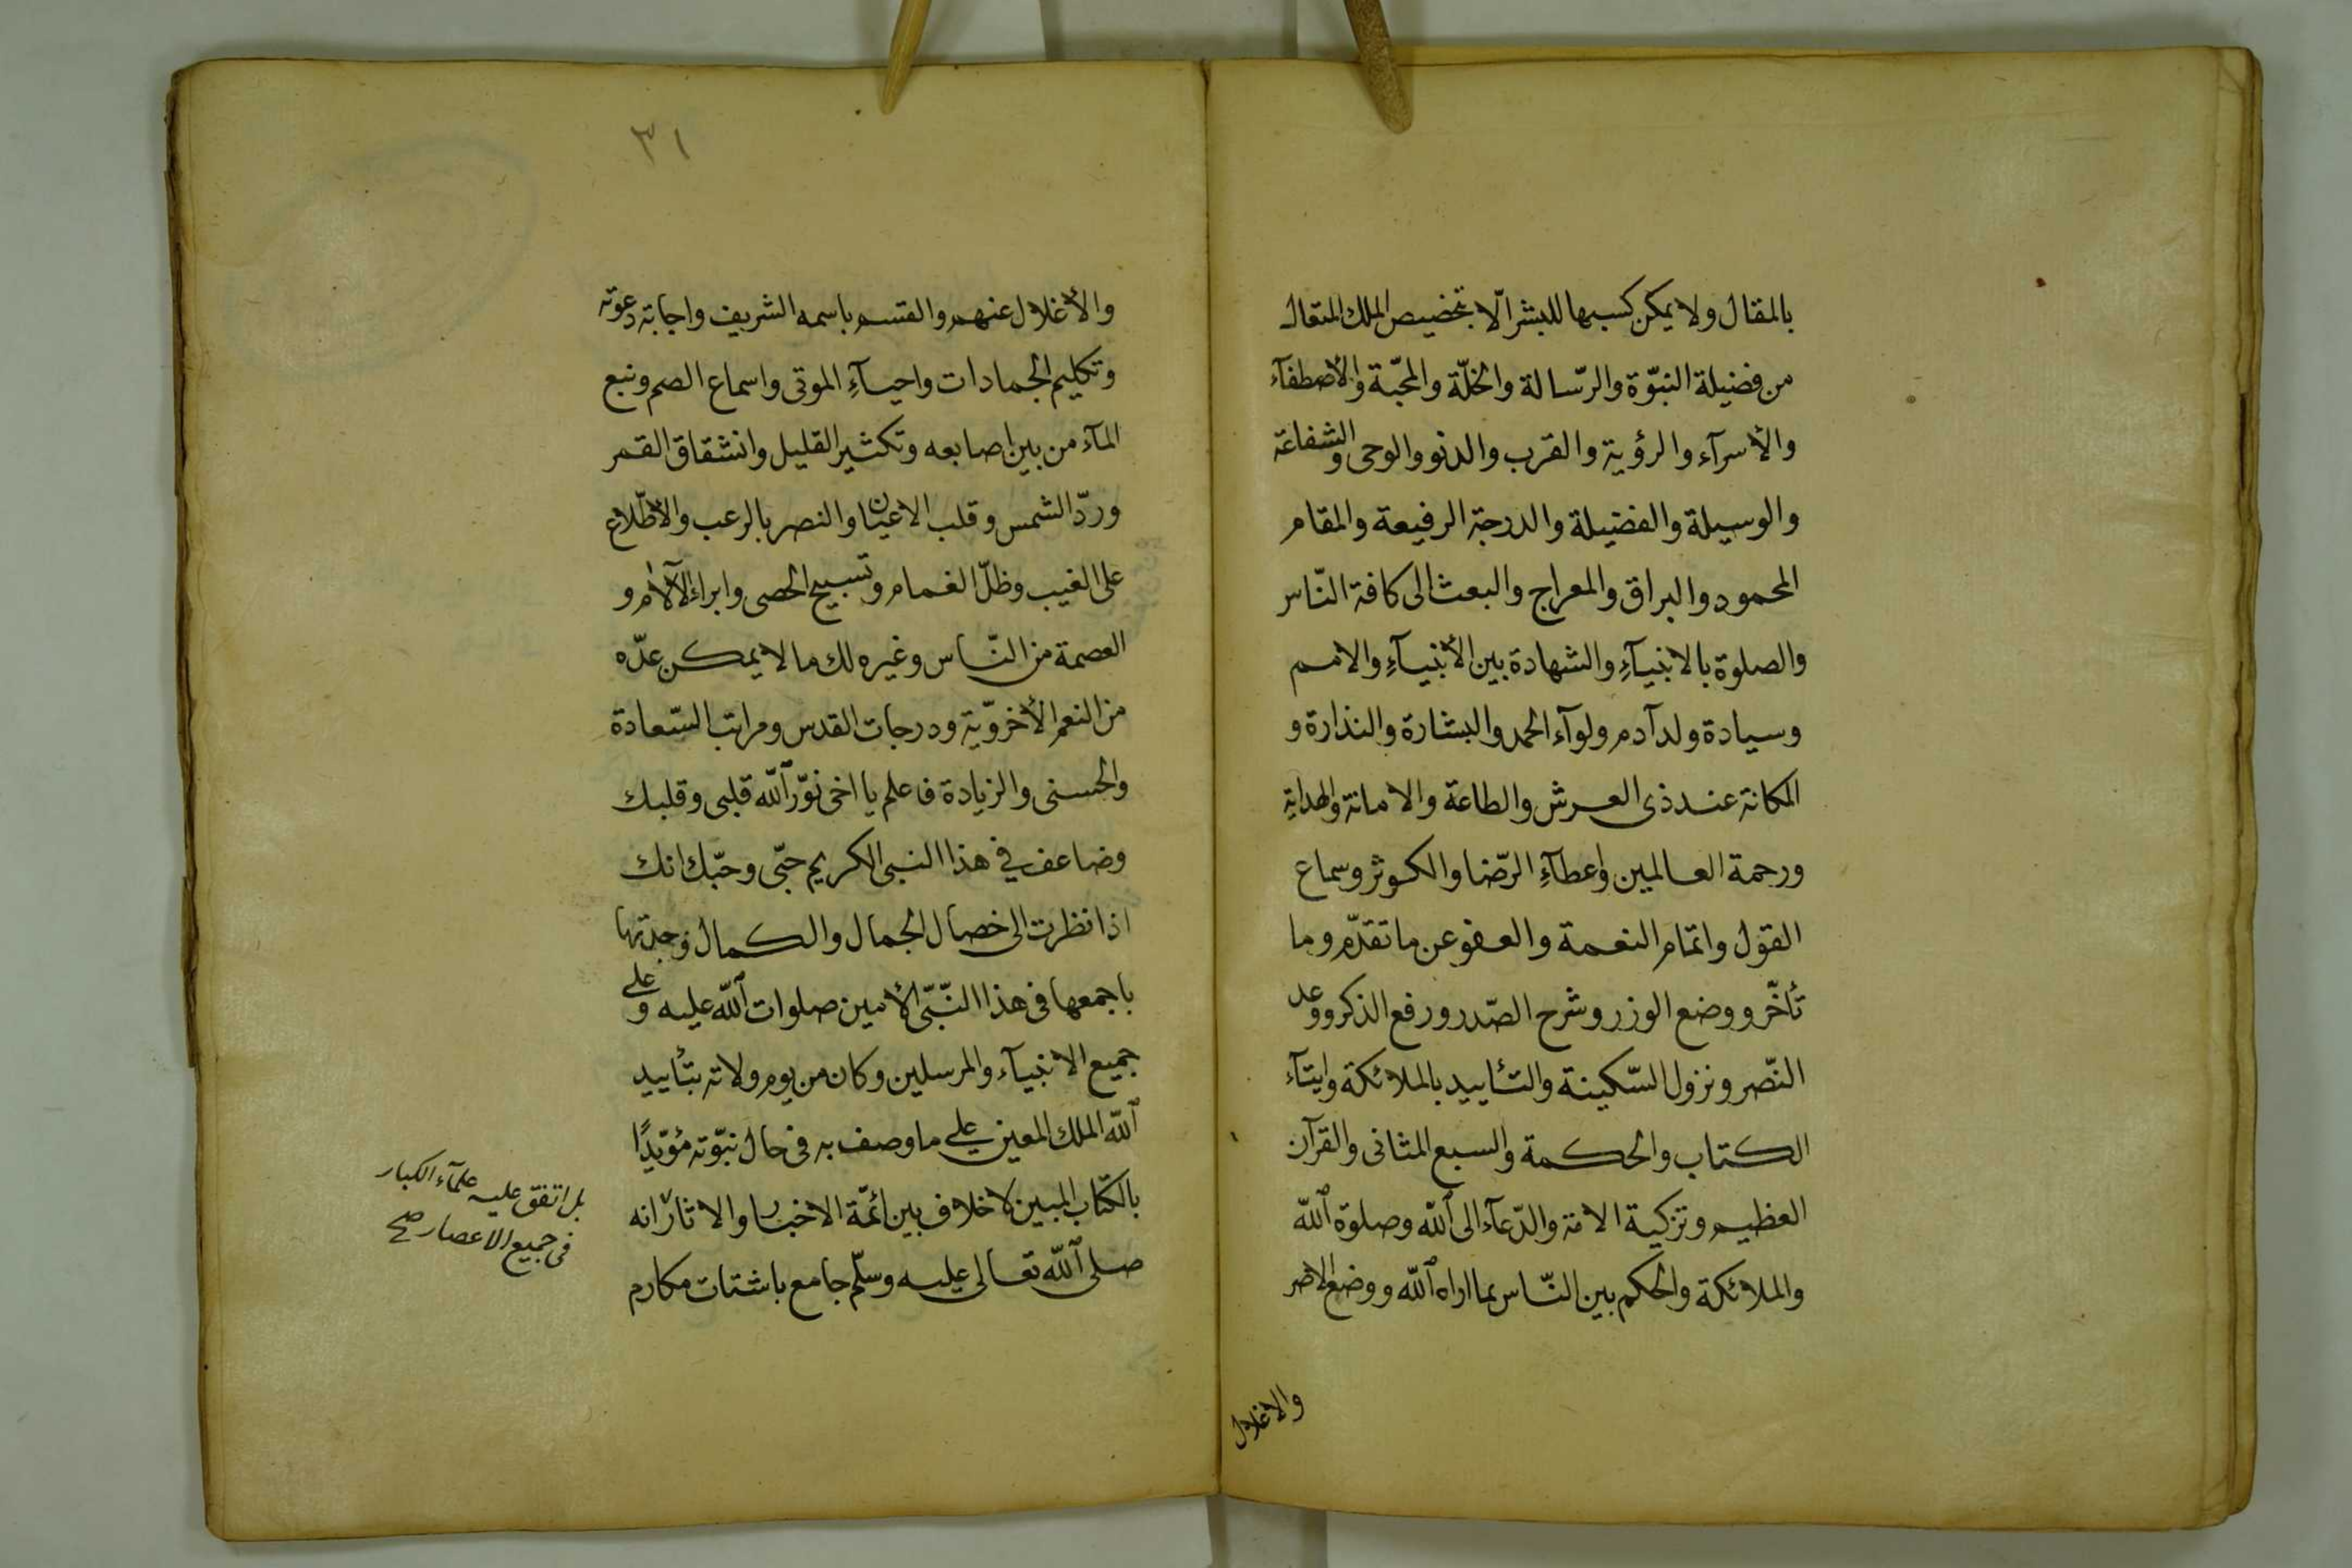 بالمقال ولا يمكن كسبها للبشر الّا بتخصيص الملك المتعال
من فضيلة النبوّة والرّسالة والخلّة والمحبّة والأصطفآء
والأسرآء والرؤية والقرب والدنو والوحى والشفاعة
والوسيلة والفضيلة والدرجة الرفيعة والمقام
المحمود والبراق والمعراج والبعث الى كافة النّاس
والصلوة بالانبيآءِ والشهادة بين الأنبيآءِ والامم
وسيادة ولد آدم ولوآء الحمد والبشارة والنذارة و
المكانة عند ذى العرش والطاعة والامانة والهداية
ورحمة العالمين واعطآءِ الرّضا والكوثر وسماع
القول واتمام النعمة والعفو عن ما تقدّم وما
تأخّر ووضع الوزر وشرح الصّدر ورفع الذكر ووعد
النّصر ونزول السّكينة والتأييد بالملائكة وايتآء
الكتاب والحكمة والسبع المثانى والقرآن
العظيم وتزكية الامة والدّعآء الى الله وصلوة الله
والملائكة والحكم بين النّاس بما اراه الله ووضع الاصر
والاغلال
٣١
والأغلال عنهم والقسم باسمه الشريف واجابة دعوته
وتكليم الجمادات واحيآءِ الموتى واسماع الصم ونبع
المآء من بين اصابعه وتكثير القليل وانشقاق القمر
وردّ الشمس وقلب الاعيان والنصر بالرعب والأطّلاع
على الغيب وظلّ الغمام وتسبيح الحصى وابراء الآلام و
العصمة من النّاس وغير ه لك ما لا يمكن عدّه
من النعم الأخرويّة ودرجات القدس ومراتب السّعادة
والحسنى والزيادة فاعلم يا اخى نوّر الله قلبى وقلبك
وضاعف في هذا النبى الكريم حبّى وحبّك انك
اذا نظرت الى خصال الجمال والكمال وجدتها
باجمعها فى هذا النّبّى الأمين صلوات الله عليه وعلى
جميع الانبيآء والمرسلين وكان من يوم ولاته بتأييد
الله الملك المعين على ما وصف به فى حال نبوّته مؤيّدًا
بالكتاب المبين لا خلاف بين ائمّة الاخبار والاثار انه
صلى الله تعالى عليه وسلّم جامع باشتات مكارم
بل اتفق عليه علمآء الكبار
فى جميع الاعصار صح